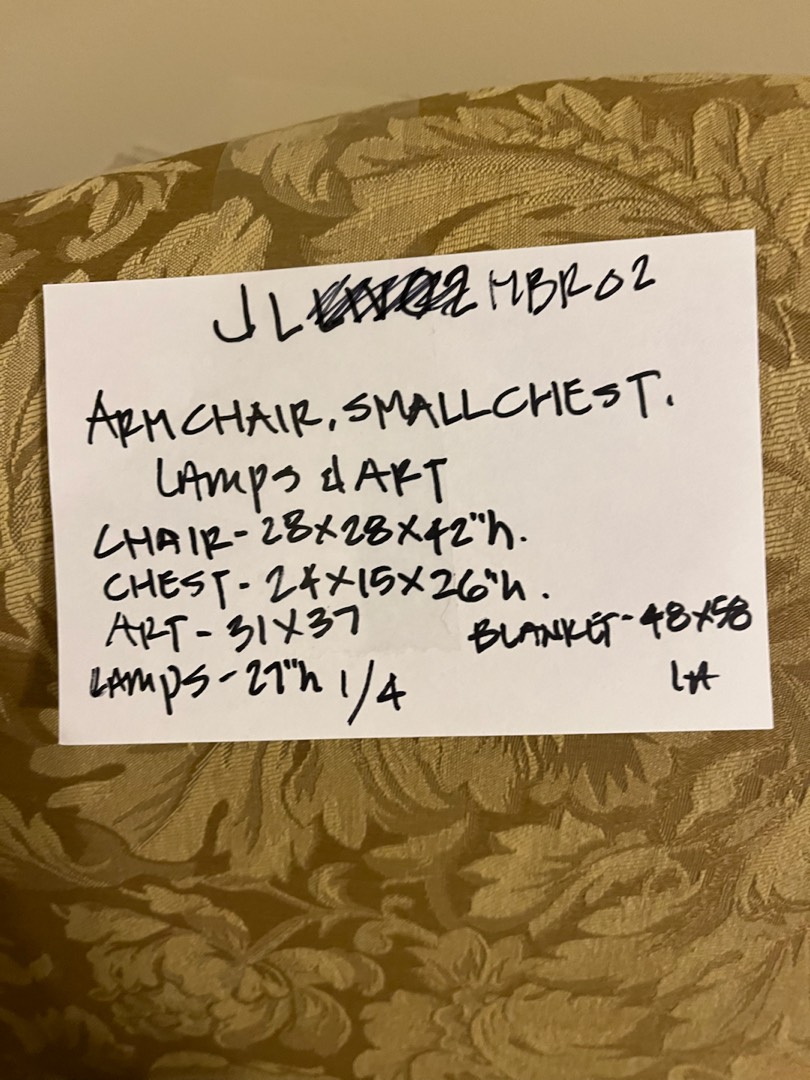 JL MBR02
ARMCHAIR, SMALL CHEST.
LAMPS & ART
CHAIR - 28X28X42"h.
CHEST - 24X15X26"h.
ART - 31X37
BLANKET - 48X58
LAMPS - 27"h 1/4
LA